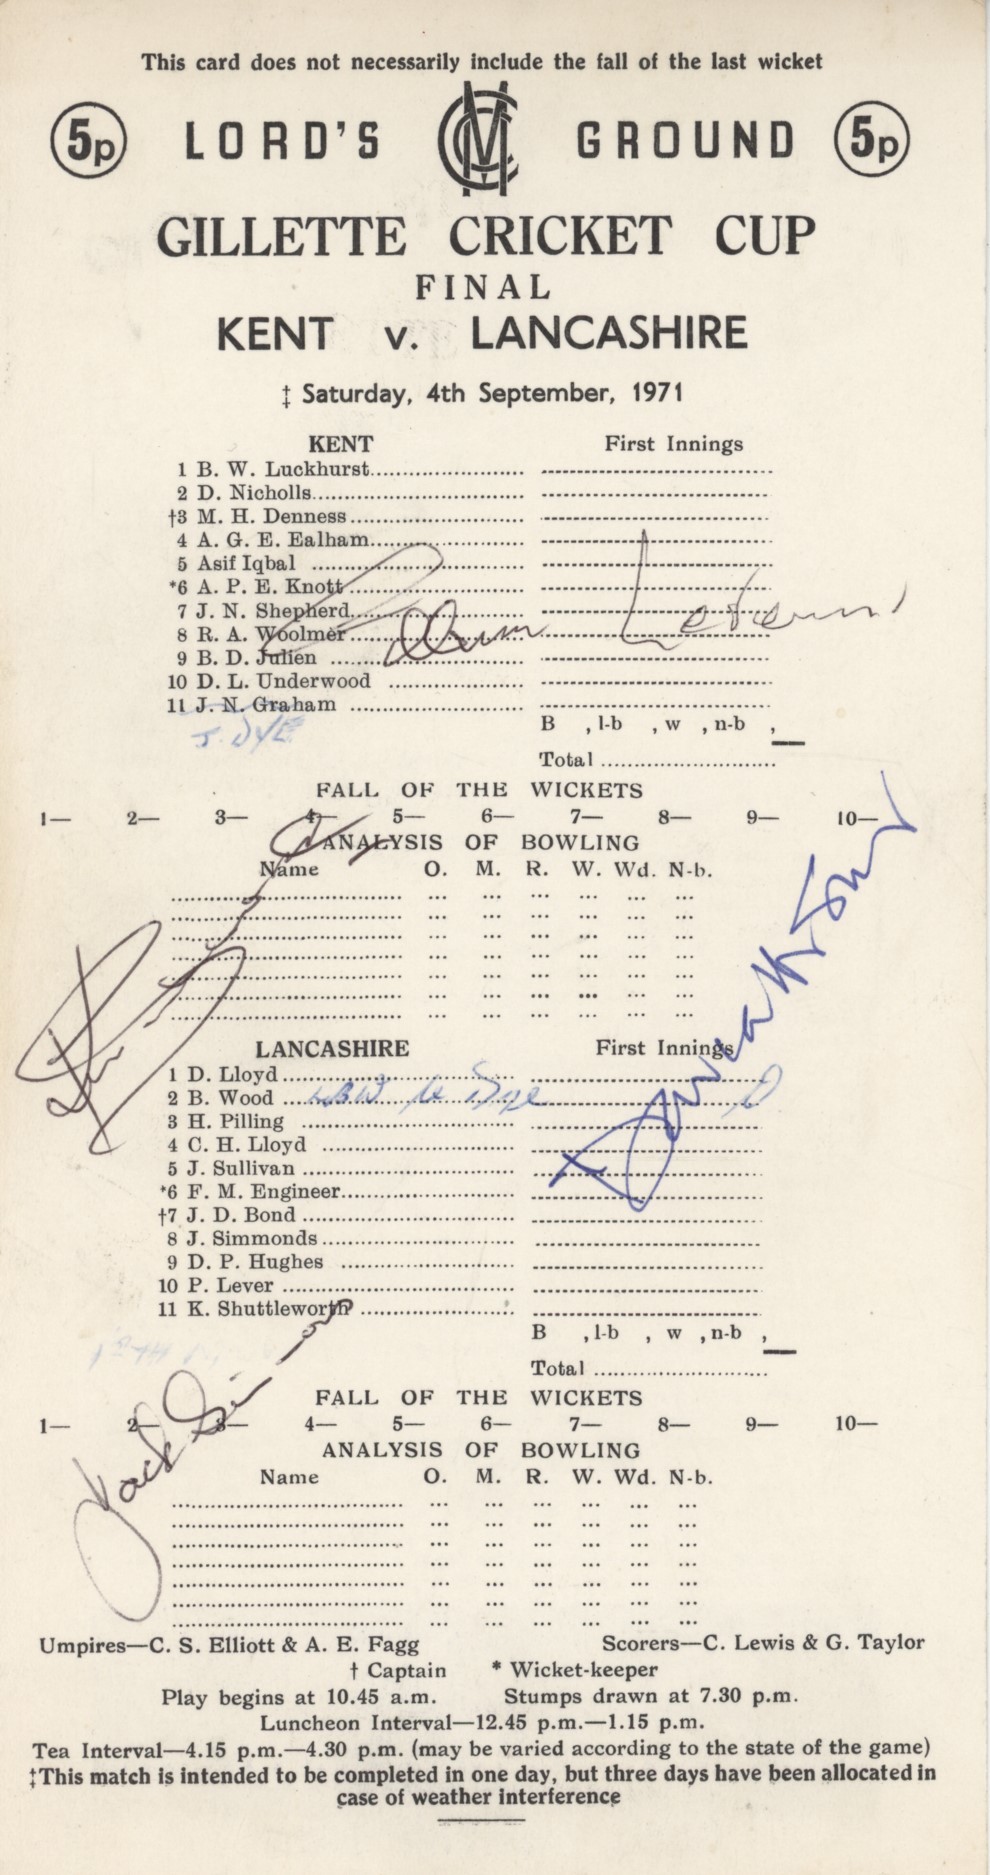 This card does not necessarily include the fall of the last wicket
5p LORD'S MCC GROUND 5p
GILLETTE CRICKET CUP
FINAL
KENT v. LANCASHIRE
‡ Saturday, 4th September, 1971
KENT First Innings
1 B. W. Luckhurst
2 D. Nicholls
†3 M. H. Denness
4 A. G. E. Ealham
5 Asif Iqbal
*6 A. P. E. Knott
7 J. N. Shepherd
8 R. A. Woolmer
9 B. D. Julien
10 D. L. Underwood
11 J. N. Graham
J. DYE
B , l-b , w , n-b ,
Total
FALL OF THE WICKETS
1— 2— 3— 4— 5— 6— 7— 8— 9— 10—
ANALYSIS OF BOWLING
Name O. M. R. W. Wd. N-b.
LANCASHIRE First Innings
1 D. Lloyd
2 B. Wood LBW b Dye 0
3 H. Pilling
4 C. H. Lloyd
5 J. Sullivan
*6 F. M. Engineer
†7 J. D. Bond
8 J. Simmonds
9 D. P. Hughes
10 P. Lever
11 K. Shuttleworth
B , l-b , w , n-b ,
Total
Jack Simmons
FALL OF THE WICKETS
1— 2— 3— 4— 5— 6— 7— 8— 9— 10—
ANALYSIS OF BOWLING
Name O. M. R. W. Wd. N-b.
Umpires—C. S. Elliott & A. E. Fagg Scorers—C. Lewis & G. Taylor
† Captain * Wicket-keeper
Play begins at 10.45 a.m. Stumps drawn at 7.30 p.m.
Luncheon Interval—12.45 p.m.—1.15 p.m.
Tea Interval—4.15 p.m.—4.30 p.m. (may be varied according to the state of the game)
‡This match is intended to be completed in one day, but three days have been allocated in
case of weather interference